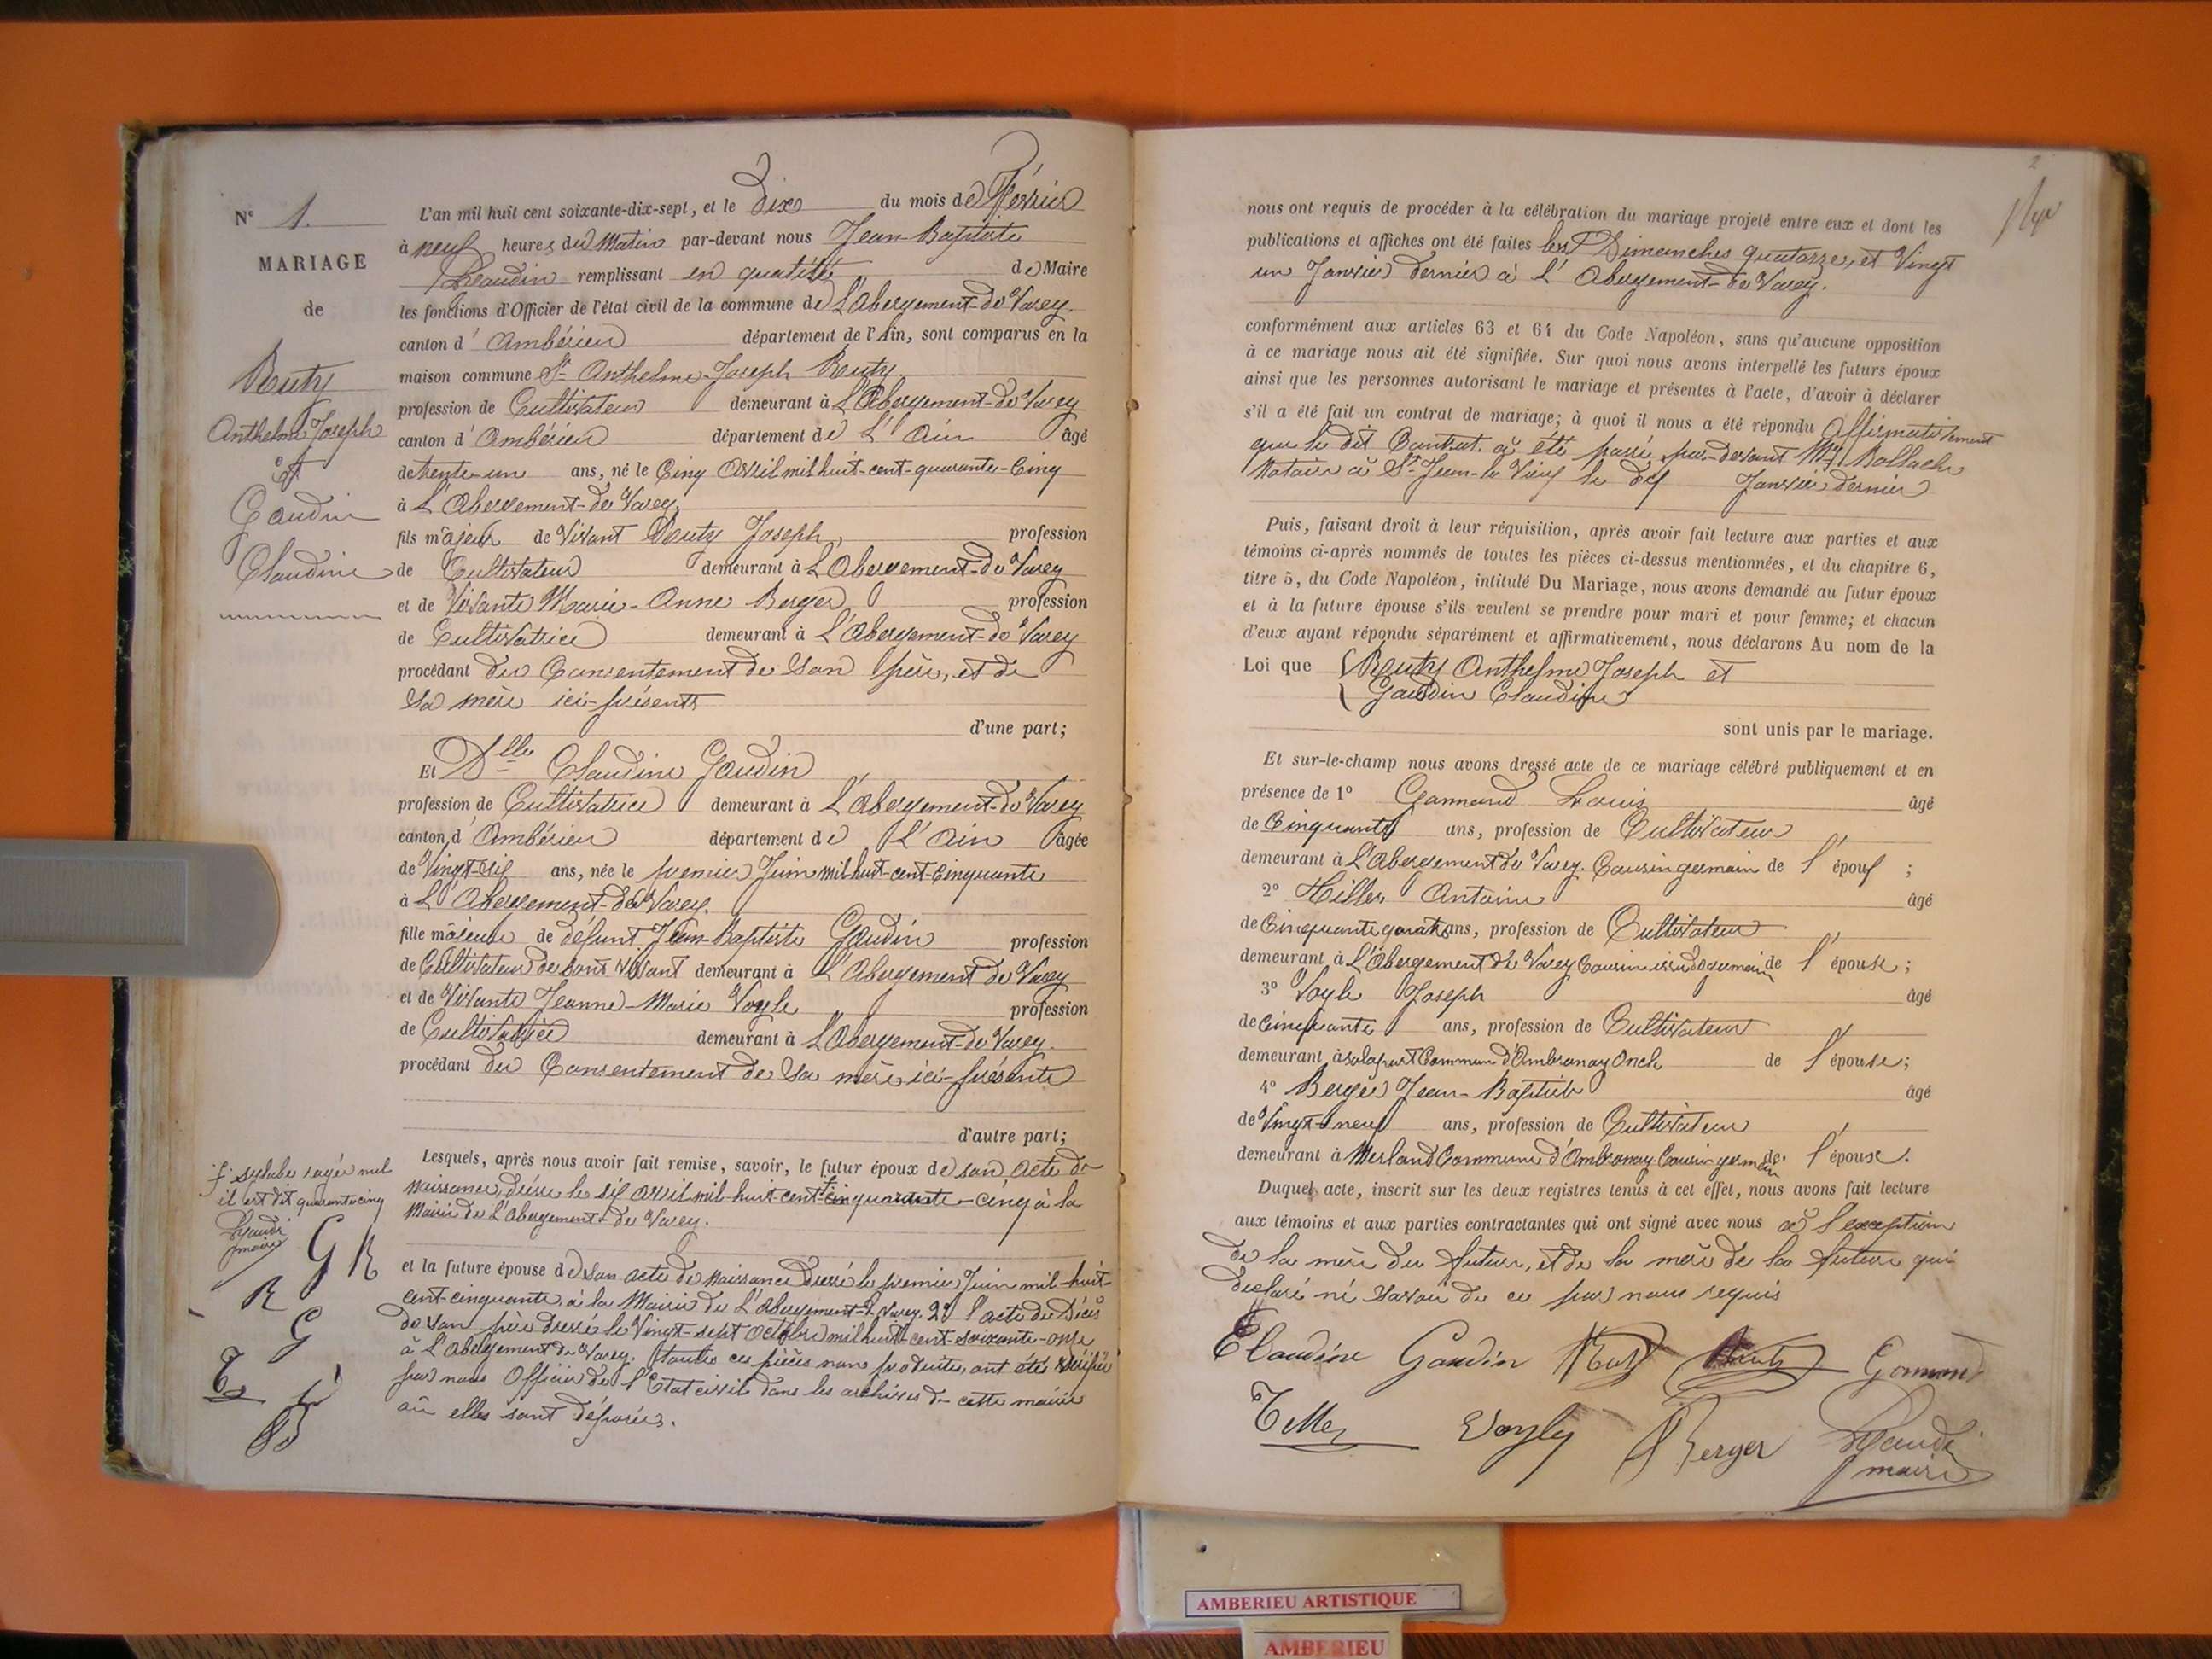 N° 1.
MARIAGE
de
Reuty
Anthelme Joseph
et
Gaudin
Claudine
L'an mil huit cent soixante-dix-sept, et le Dix du mois de Février
à neuf heures du Matin par-devant nous Jean-Baptiste
remplissant en qualité de Maire
les fonctions d'Officier de l'état civil de la commune de L'Abergement-de Varey.
canton d' Ambérieu département de l'Ain, sont comparus en la
maison commune Sr Anthelme-Joseph Reuty.
profession de Cultivateur demeurant à L'Abergement-de Varey
canton d' Ambérieu département de L' Ain âgé
de trente-un ans, né le Cinq Avril mil huit-cent-quarante-Cinq
à L'Abergement-de Varey,
fils majeur de Vivant Reuty Joseph, profession
de Cultivateur demeurant à L'Abergement-de Varey
et de Vivante Marie-Anne Berger profession
de Cultivatrice demeurant à L'Abergement-de Varey
procédant du Consentement de Son père, et de
Sa mère ici-présents
d'une part;
Et Dlle Claudine Gaudin
profession de Cultivatrice demeurant à L'Abergement-de Varey
canton d' Ambérieu département de L' Ain âgée
de Vingt-six ans, née le premier Juin mil-huit-cent-Cinquante
à L'Abergement-de Varey.
fille majeure de défunt Jean-Baptiste Gaudin profession
de Cultivateur de Son vivant demeurant à L'Abergement de Varey
et de Vivante Jeanne-Marie Voyle profession
de Cultivatrice demeurant à L'Abergement-de Varey.
procédant du Consentement de Sa mère ici-présente
d'autre part;
Lesquels, après nous avoir fait remise, savoir, le futur époux de son acte de
Naissance, dressé le six avril mil-huit-cent-cinquante-cinq à la
Mairie de L'Abergement-de Varey.
et la future épouse de Son acte de Naissance dressé le premier Juin mil-huit-
cent-cinquante, à la Mairie de L'Abergement-de Varey, 2° l'acte de Décès
de Son père dressé le Vingt-sept Octobre mil huit-cent-soixante-onze
à L'Abergement de Varey. toutes ces pièces non produites, ont étés vérifié
par nous Officier de l'Etat civil dans les archives de cette mairie
où elles sont déposées.
syllabe rayée nul
il est dit quarante cinq
maire
G R
R
G
T
B
2
nous ont requis de procéder à la célébration du mariage projeté entre eux et dont les
publications et affiches ont été faites les Dimanches quatorze, et Vingt
un Janvier dernier à L' Abergement-de Varey.
conformément aux articles 63 et 64 du Code Napoléon, sans qu'aucune opposition
à ce mariage nous ait été signifiée. Sur quoi nous avons interpellé les futurs époux
ainsi que les personnes autorisant le mariage et présentes à l'acte, d'avoir à déclarer
s'il a été fait un contrat de mariage; à quoi il nous a été répondu Affirmativement
que le dit Contrat a été passé par-devant
Notaire à St-Jean-le Vieux le dix Janvier dernier
Puis, faisant droit à leur réquisition, après avoir fait lecture aux parties et aux
témoins ci-après nommés de toutes les pièces ci-dessus mentionnées, et du chapitre 6,
titre 5, du Code Napoléon, intitulé Du Mariage, nous avons demandé au futur époux
et à la future épouse s'ils veulent se prendre pour mari et pour femme; et chacun
d'eux ayant répondu séparément et affirmativement, nous déclarons Au nom de la
Loi que Reuty Anthelme Joseph et
Gaudin Claudine
sont unis par le mariage.
Et sur-le-champ nous avons dressé acte de ce mariage célébré publiquement et en
présence de 1° Gormand Louis âgé
de Cinquante ans, profession de Cultivateur
demeurant à L'Abergement de Varey. Cousin germain de l'époux ;
2° Antoine âgé
de Cinquante quatre ans, profession de Cultivateur
demeurant à L'Abergement de Varey Cousin issu de germain de l'épouse ;
3° Voyle Joseph âgé
de Cinquante ans, profession de Cultivateur
demeurant à Salaport Commune d'Ambronay Oncle de l'épouse;
4° Berger Jean-Baptiste âgé
de Vingt-neuf ans, profession de Cultivateur
demeurant à Merland Commune d'Ambronay Cousin germain de l'épouse.
Duquel acte, inscrit sur les deux registres tenus à cet effet, nous avons fait lecture
aux témoins et aux parties contractantes qui ont signé avec nous à l'exception
de la mère du futur, et de la mère de la future qui
déclaré né savoir de ce par nous requis
Claudine Gaudin Reuty Gormand
Voyle Berger
maire
AMBERIEU ARTISTIQUE
AMBERIEU